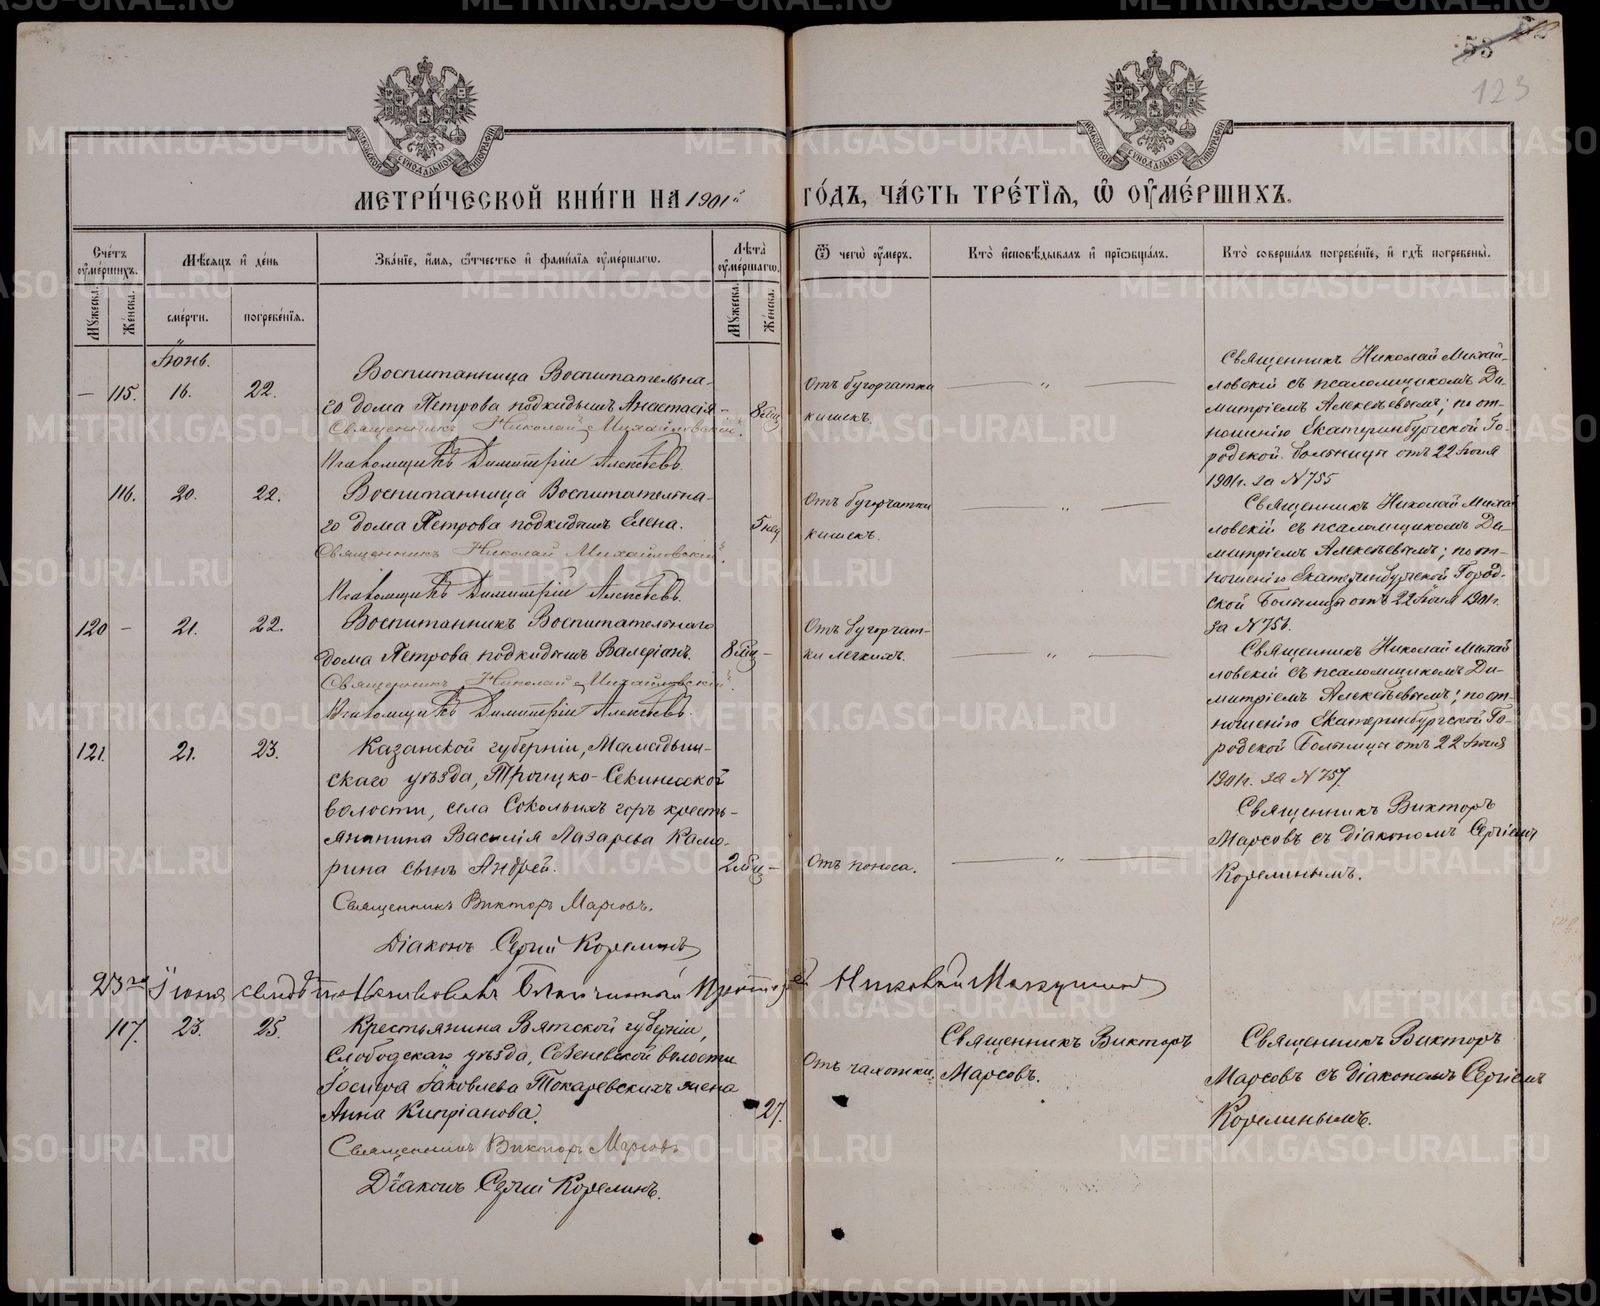 53
123
МОСКОВСКОЙ СѴНОДАЛЬНОЙ ТИПОГРАФІИ
МОСКОВСКОЙ СѴНОДАЛЬНОЙ ТИПОГРАФІИ
МЕТРИ́ЧЕСКОЙ КНИ́ГИ НА 1901й ГО́ДЪ, ЧА́СТЬ ТРЕ́ТІЯ, Ѡ ОУ҆МЕ́РШИХЪ.
Сче́тъ оу҆ме́ршихъ.
Мѣ́сяцъ и҆ де́нь
Зва́ніе, и҆́мя, ѻ҆́тчество и҆ фами́лія оу҆ме́ршагѡ.
Лѣта̀ оу҆ме́ршагѡ.
Ѿ чегѡ̀ оу҆́меръ.
Кто̀ и҆сповѣ́дывалъ и҆ прїѡбща́лъ.
Кто̀ соверша́лъ погребе́ніе, и҆ гдѣ̀ погребены̀.
Мꙋ́жеска.
Же́нска.
сме́рти.
погребе́нія.
Мꙋ́жеска.
Же́нска.
Іюнь.
— 115. 16. 22.
Воспитанница Воспитательна-
го дома Петрова подкидышъ Анастасія
Священникъ Николай Михайловскій.
Псаломщикъ Димитрій Алексѣевъ.
— 8 мѣс
Отъ бугорчатки
кишекъ.
— " —
Священникъ Николай Михай-
ловскій съ псаломщикомъ Ди-
митріемъ Алексѣевымъ; по от-
ношенію Екатеринбургской Го-
родской Больницы отъ 22 Іюня
1901г. за N 755
116. 20. 22.
Воспитанница Воспитательна-
го дома Петрова подкидышъ Елена.
Священникъ Николай Михайловскій.
Псаломщикъ Димитрій Алексѣевъ.
5 нед
Отъ бугорчатки
кишекъ.
— " —
Священникъ Николай Михай
ловскій съ псаломщикомъ Ди-
митріемъ Алексѣевымъ; по от-
ношенію Екатеринбургской Город-
ской Больницы отъ 22 Іюня 1901г.
за N 756.
120 — 21. 22.
Воспитанникъ Воспитательнаго
дома Петрова подкидышъ Валеріанъ.
Священникъ Николай Михайловскій.
Псаломщикъ Димитрій Алексѣевъ.
8 мѣс —
Отъ бугорчат-
ки легкихъ.
— " —
Священникъ Николай Михай
ловскій съ псаломщикомъ Ди-
митріемъ Алексѣевымъ; по от-
ношенію Екатеринбургской Го-
родской Больницы отъ 22 Іюня
1901г. за N 757.
121. 21. 23.
Казанской губерніи, Мамадыш-
скаго уѣзда, Троицко-Секинесской
волости, села Сокольихъ горъ кресть-
янина Василія Лазарева Кама-
рина сынъ Андрей.
Священникъ Викторъ Марсовъ.
Діаконъ Сергій Корелинъ
2 мѣс —
Отъ поноса.
— " —
Священникъ Викторъ
Марсовъ съ діакономъ Сергіемъ
Корелинымъ.
23го Іюня свидѣтельствовалъ Благочинный Протоіерей Николай
117. 23. 25.
Крестьянина Вятской губерніи,
Слободскаго уѣзда, Сезеневской волости
Іосифа Іаковлева Токаревскихъ жена
Анна Кипріанова.
Священникъ Викторъ Марсовъ
Діаконъ Сергій Корелинъ.
27.
Отъ чахотки.
Священникъ Викторъ
Марсовъ.
Священникъ Викторъ
Марсовъ съ діакономъ Сергіемъ
Корелинымъ.
METRIKI.GASO-URAL.RU